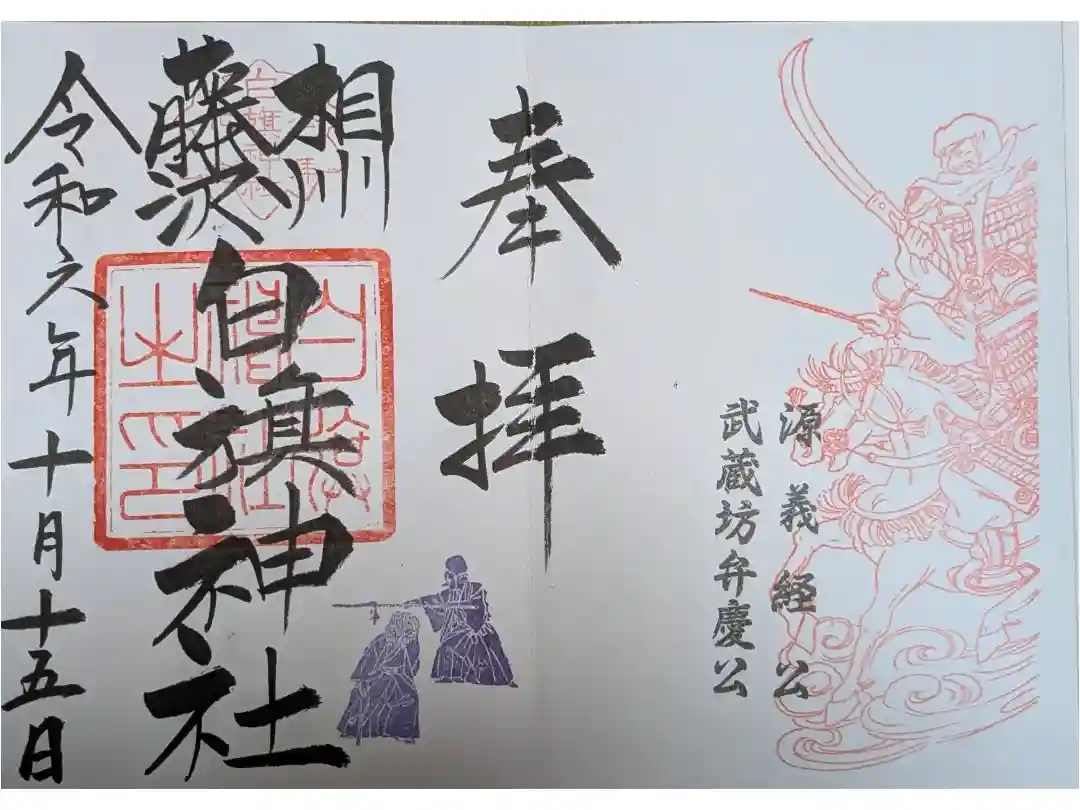 源義経公
武蔵坊弁慶公
奉拝
相州
藤沢
白旗神社
令和六年十月十五日